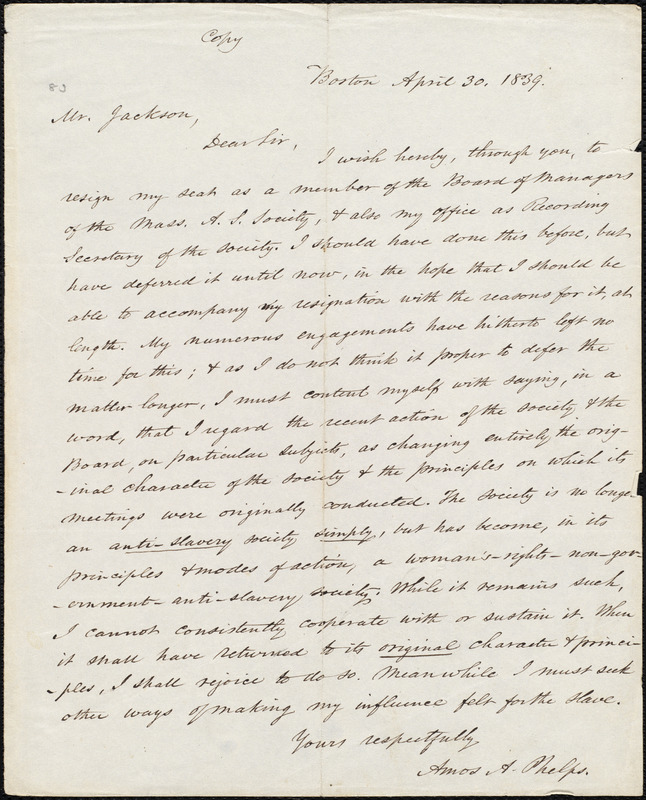 Copy
Boston April 30. 1839.
Mr. Jackson,
Dear Sir,
I wish hereby, through you, to
resign my seat as a member of the Board of Managers
of the Mass. A. S. Society, & also my office as Recording
Secretary of the society. I should have done this before, but
have deferred it until now, in the hope that I should be
able to accompany my resignation with the reasons for it, at
length. My numerous engagements have hitherto left no
time for this; & as I do not think it proper to defer the
matter longer, I must content myself with saying, in a
word, that I regard the recent action of the society & the
Board, on particular subjects, as changing entirely the orig-
-inal character of the society & the principles on which its
meetings were originally conducted. The society is no longer
an anti-slavery society simply, but has become, in its
principles & modes of action, a woman's-rights-non-gov-
-ernment-anti-slavery society. While it remains such,
I cannot consistently cooperate with or sustain it. When
it shall have returned to its original character & princi-
-ples, I shall rejoice to do so. Meanwhile I must seek
other ways of making my influence felt for the slave.
Yours respectfully
Amos A. Phelps.